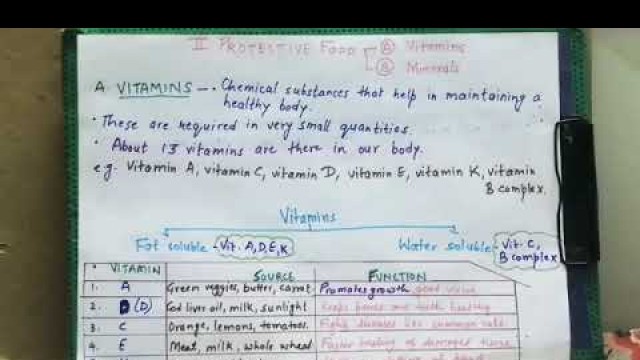 II PROTECTIVE FOOD A Vitamins
B Minerals
A VITAMINS — . Chemical substances that help in maintaining a
healthy body.
· These are required in very small quantities.
· About 13 vitamins are there in our body.
e.g. Vitamin A, vitamin C, vitamin D, vitamin E, vitamin K, vitamin
B complex.
Vitamins
Fat soluble - Vit. A,D,E,K Water soluble - Vit. C,
B complex
VITAMIN SOURCE FUNCTION
1. A Green veggies, butter, carrot. Promotes growth, good vision
2. D (D) Cod liver oil, milk, sunlight Keeps bones and teeth healthy
3. C Orange, lemons, tomatoes. Fights diseases like common cold.
4. E Meat, milk, whole wheat Faster healing of damaged tissue